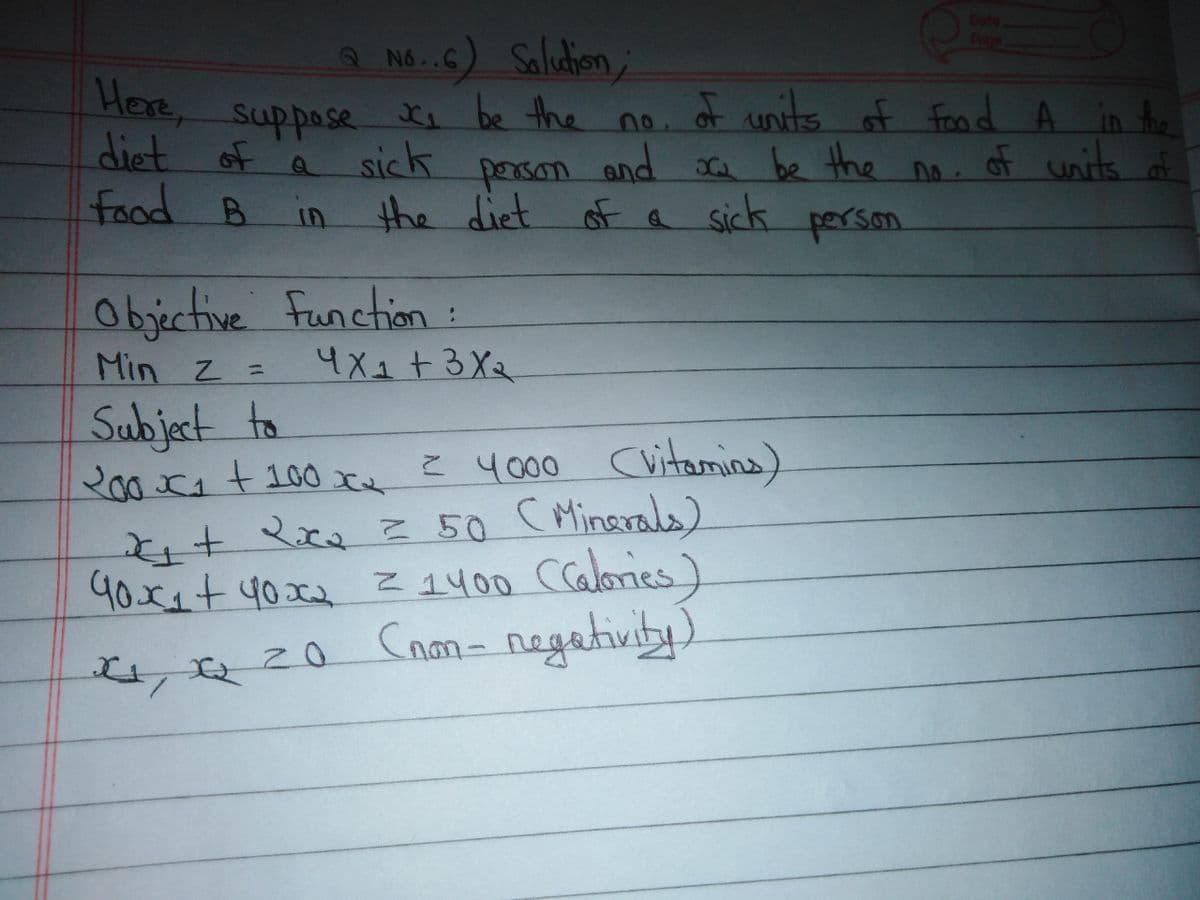 Date
Page
Q No..6) Solution;
Here, suppose x1 be the no. of units of food A in the
diet of a sick person and x2 be the no. of units of
food B in the diet of a sick person
Objective Function :
Min Z = 4X1 + 3X2
Subject to
200x1 + 100x2 ≥ 4000 (Vitamins)
x1 + 2x2 ≥ 50 (Minerals)
40x1 + 40x2 ≥ 1400 (Calories)
x1, x2 ≥ 0 (non-negativity)